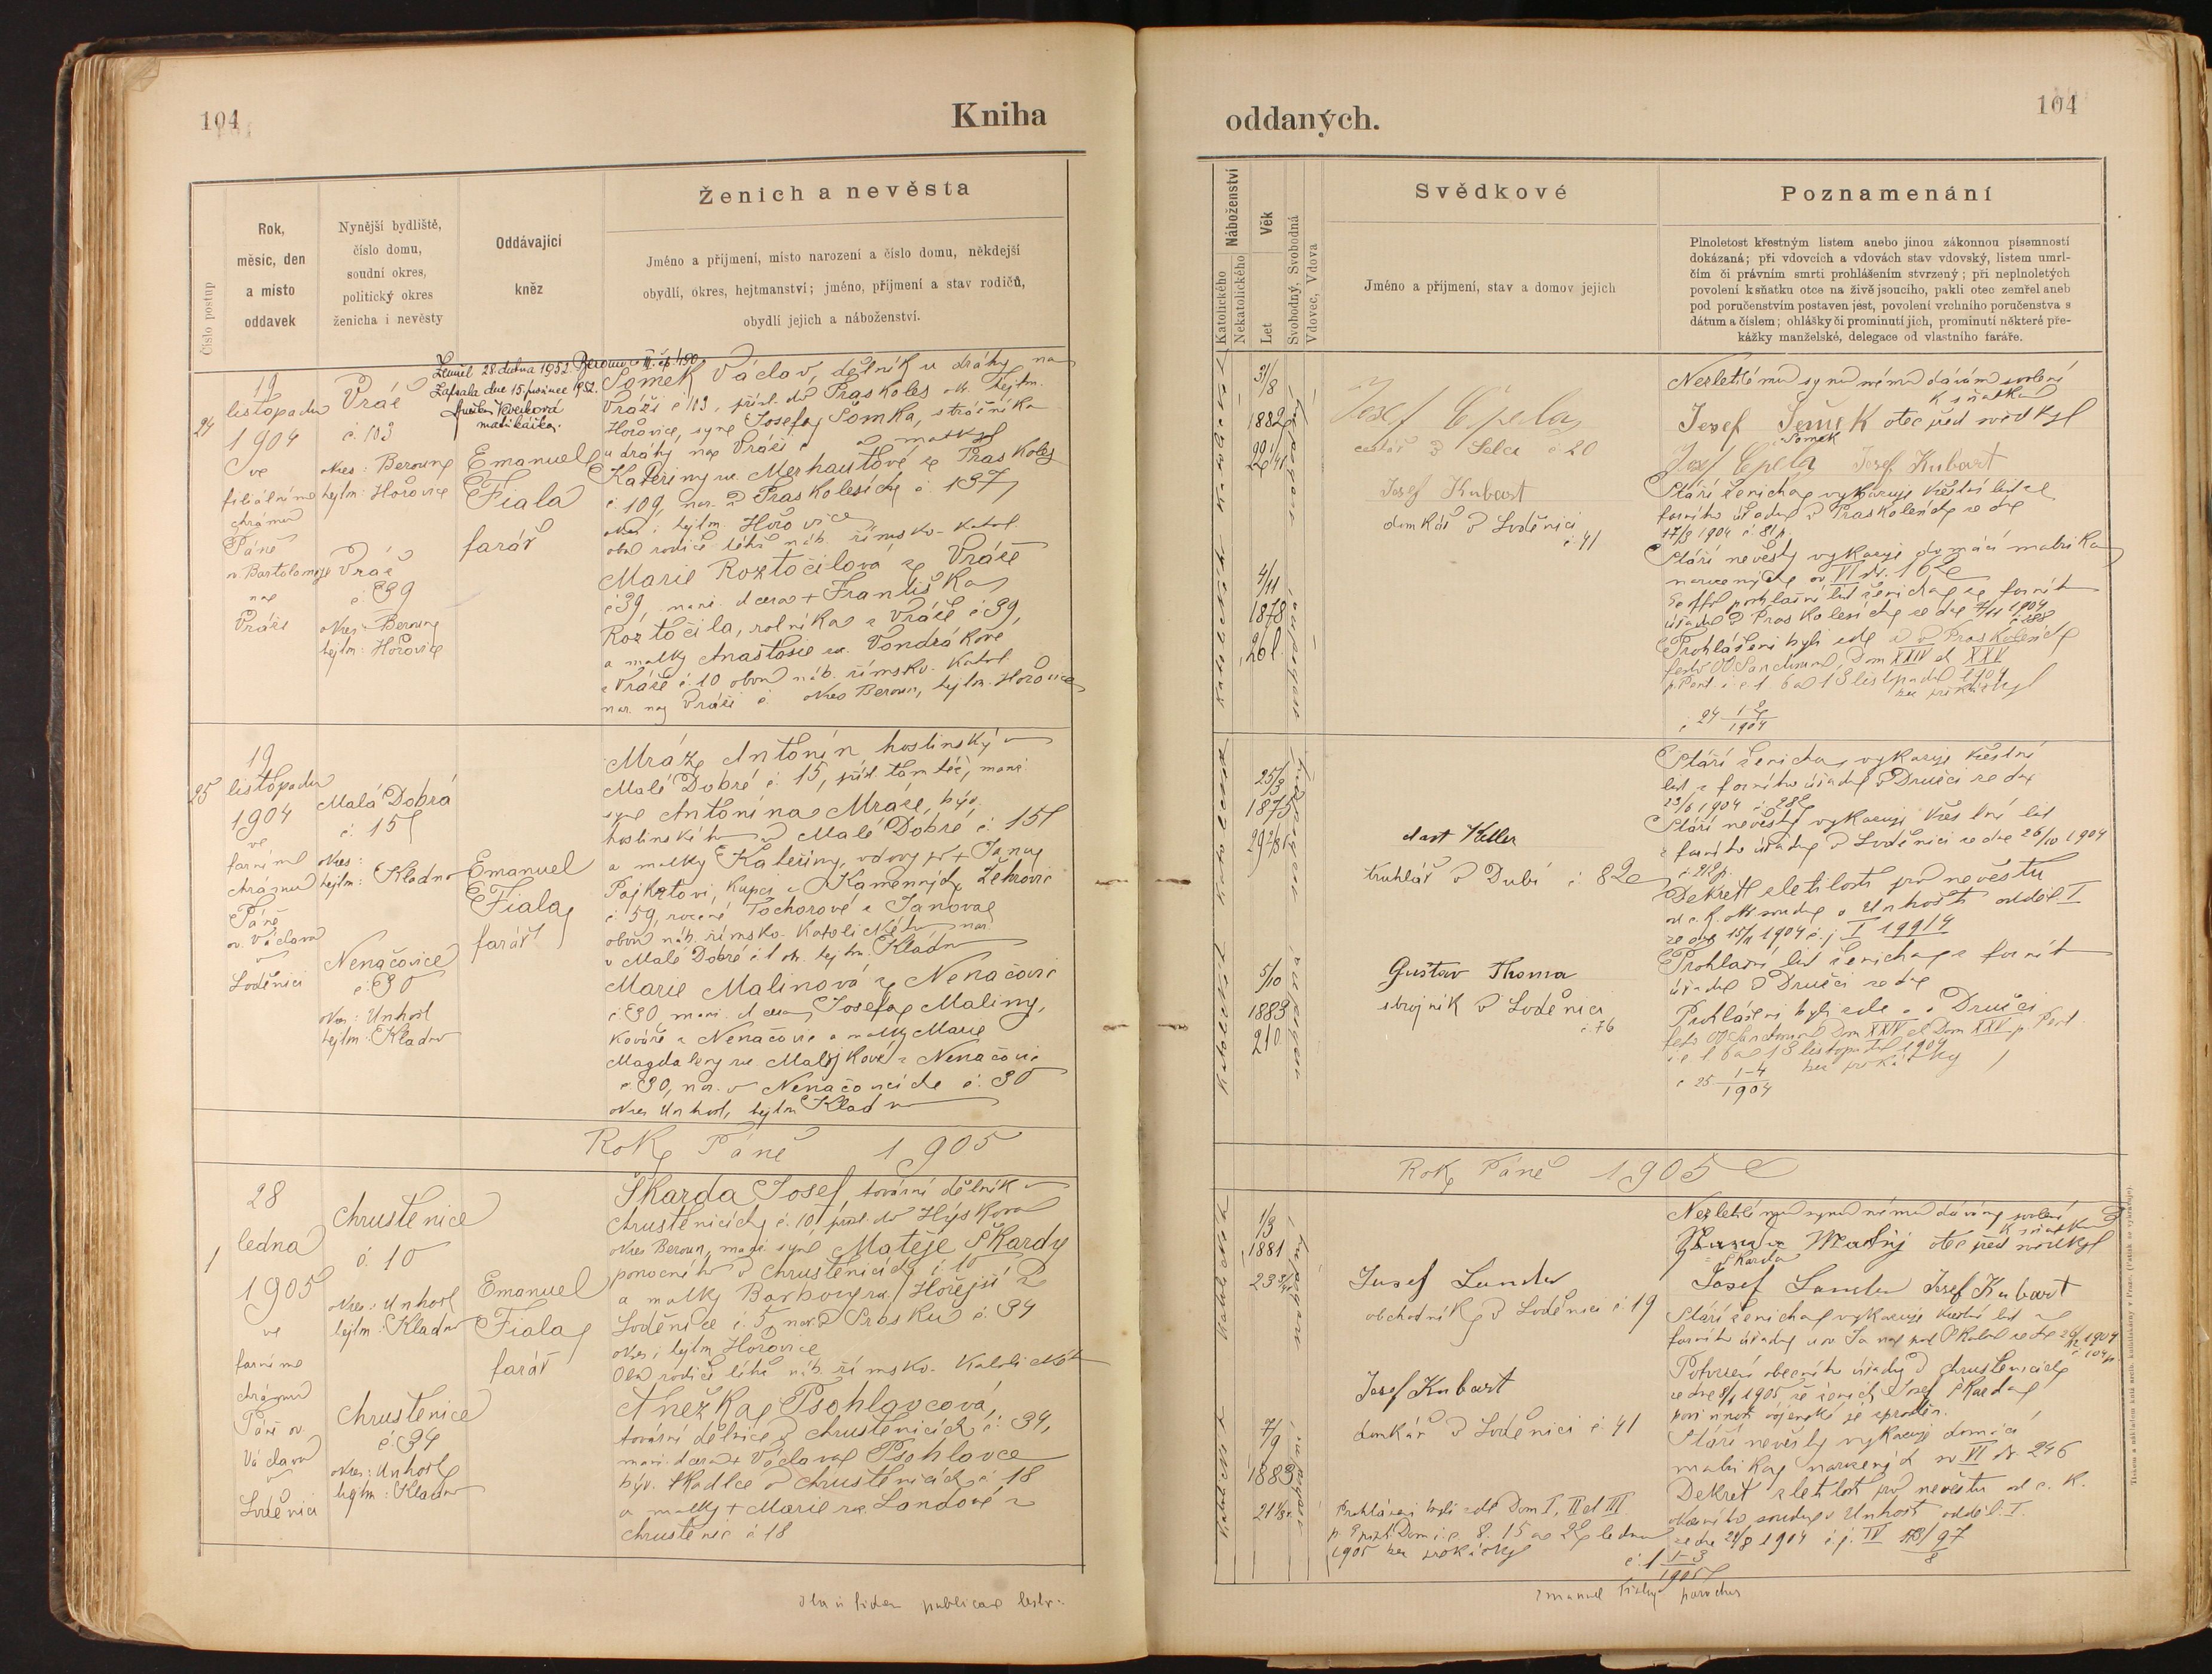 104
Kniha
Číslo postup
Rok,
měsíc, den
a místo
oddavek
Nynější bydliště,
číslo domu,
soudní okres,
politický okres
ženicha i nevěsty
Oddávající
kněz
Ženich a nevěsta
Jméno a příjmení, místo narození a číslo domu, někdejší
obydlí, okres, hejtmanství; jméno, příjmení a stav rodičů,
obydlí jejich a náboženství.
24
19
listopadu
1904
ve
filiálním
chrámu
Páně
sv. Bartoloměje
na
Vráži
Vráž
č. 103
okres: Beroun
hejtm: Hořovice
Vráž
č. 39
okres: Beroun
hejtm: Hořovice
Zemřel 28. dubna 1952. Beroun
Zapsala dne 15. prosince 1952.
matrikářka.
Emanuel
Fiala
farář
Šomek Václav, dělník u dráhy na
Vráži č 103, přísl. do Praskoles ok. hejtm.
Hořovice, syn Josefa Šomka, strážníka
u dráhy na Vráži a matky
Kateřiny roz. Merhautové z Praskoles
č. 109, nar. v Praskolesích č 137
okres i hejtm. Hořovice
oba rodiče téhž náb. římsko-katol.
Marie Roztočilová z Vráže
č 39, manž. dcera + Františka
Roztočila, rolníka z Vráže č 39,
a matky Anastasie roz. Vondrákové
z Vráže č. 10 obou náb. římsko-katol.
nar. na Vráži č. okres Beroun, hejtm. Hořovice
25
19
listopadu
1904
ve
farním
chrámu
Páně
sv. Václava
v
Loděnici
Malá Dobrá
č. 15
okres:
hejtm: Kladno
Nenačovice
č. 30
okres: Unhošť
hejtm: Kladno
Emanuel
Fiala
farář
Mráz Antonín hostinský v
Malé Dobré č. 15, přísl. tamtéž, manž.
syn Antonína Mráze, býv.
hostinského v Malé Dobré č. 15
a matky Kateřiny, vdovy po + Janu
kupci z Kamenných Žehrovic
č 59, rozené Tochorové z Janova
obou náb. římsko-katolického nar.
v Malé Dobré č 1 ok. hejtm. Kladno
Marie Malinová z Nenačovic
č 30 manž. dcera Josefa Maliny,
kováře z Nenačovic a matky Marie
Magdaleny roz. Matějkové z Nenačovic
č 30, nar. v Nenačovicích č. 30
okres Unhošť, hejtm Kladno
Rok Páně 1905
1
28
ledna
1905
ve
farním
chrámu
Páně sv.
Václava
v
Loděnici
Chrustenice
č. 10
okres: Unhošť
hejtm: Kladno
Chrustenice
č. 34
okres: Unhošť
hejtm: Kladno
Emanuel
Fiala
farář
Škarda Josef, tovární dělník v
Chrustenicích č. 10 přísl. do Hýskova
okres Beroun, manž. syn Matěje Škardy
ponocného v Chrustenicích č 10
a matky Barbory roz. Hořejší z
Loděnice č. 5, nar. v Srbsku č. 34
okres i hejtm Hořovice
Oba rodiče téhž náb. římsko-katolického
Anežka Psohlavcová,
tovární dělnice z Chrustenicích č. 34,
manž. dcera + Václava Psohlavce
býv. tkadlce v Chrustenicích č. 18
a matky + Marie roz. Landové z
Chrustenic č 18
oddaných.
104
Náboženství
Katolického
Nekatolického
Věk
Let
Svobodný, Svobodná
Vdovec, Vdova
Svědkové
Jméno a příjmení, stav a domov jejich
Poznamenání
Plnoletost křestným listem anebo jinou zákonnou písemností
dokázaná; při vdovcích a vdovách stav vdovský, listem umrl-
čím či právním smrti prohlášením stvrzený; při neplnoletých
povolení k sňatku otce na živě jsoucího, pakli otec zemřel aneb
pod poručenstvím postaven jest, povolení vrchního poručenstva s
dátum a číslem; ohlášky či prominutí jich, prominutí některé pře-
kážky manželské, delegace od vlastního faráře.
31/8
1882
4/11
1878
26 l.
Josef Čepela
cestář z Selce č 20
Josef Kubart
domkář v Loděnici
č 41
Nezletilému synu mému dávám svolení
k sňatku
Josef Šemek otec před svědky
Šomek
Josef Čepela Josef Kubart
Stáří ženicha vykazuje křestní list z
farního úřadu v Praskolesích ze dne
17/9 1904 č. 81
Stáří nevěsty vykazuje domácí matrika
narozených sv. VI str. 162
prohlašní list ženicha z farního
úřadu v Praskolesích ze dne 7/11 1904
Prohlášeni byli zde a v Praskolesích
festo OO Sanctorum, Dom XXIV et XXV
p. Pent. i. e. 1 6 a 13 listopadu 1904
bez překážky
č 24 1-2
1904
25/3
1875
29
5/10
1883
21
Ant Keller
truhlář v Dubí č 82
Gustav Thoma
strojník v Loděnici
č. 76
Stáří ženicha vykazuje křestní
list z farního úřadu v Družci ze dne
1904 č. 282
Stáří nevěsty vykazuje křestní list
z farního úřadu v Loděnici ze dne 26/10 1904
Dekret zletilosti pro nevěstu
od c. k. okr. soudu v Unhošti odděl I
ze dne 15/11 1904 č. j. I 199/4
Prohlašní list ženicha z farního
úřadu v Družci ze dne
Prohlášeni byli zde a v Družci
festo OO Sanctorum Dom XXIV et Dom XXV p. Pent
i e 1 6 a 13 listopadu 1904
bez překážky
č 25 1-4
1904
Rok Páně 1905
1/3
1881
7/9
1883
Josef Landa
obchodník v Loděnici č 19
Josef Kubart
domkář v Loděnici č. 41
Prohlášeni byli zde Dom I, II et III
p. Epiph Dom i. e. 8. 15 a 22 ledna
1905 bez překážky
č. 1 1-3
1905
Nezletilému synu mému dávám svolení
k sňatku
Matěj otec před svědky
Škarda
Josef Landa Josef Kubart
Stáří ženicha vykazuje křestní list z
farního úřadu u sv. Jana pod Skalou ze dne
Potvrzení obecního úřadu v Chrustenicích
ze dne 8/1 1905 že ženich Josef Škarda
povinnosti vojenské je sproštěn.
Stáří nevěsty vykazuje domácí
matrika narozených sv VI str. 246
Dekret zletilosti pro nevěstu od c. k.
okresního soudu v Unhošti odděl. I.
ze dne 21/8 1904 č. j. IV
Emanuel Fiala parochus